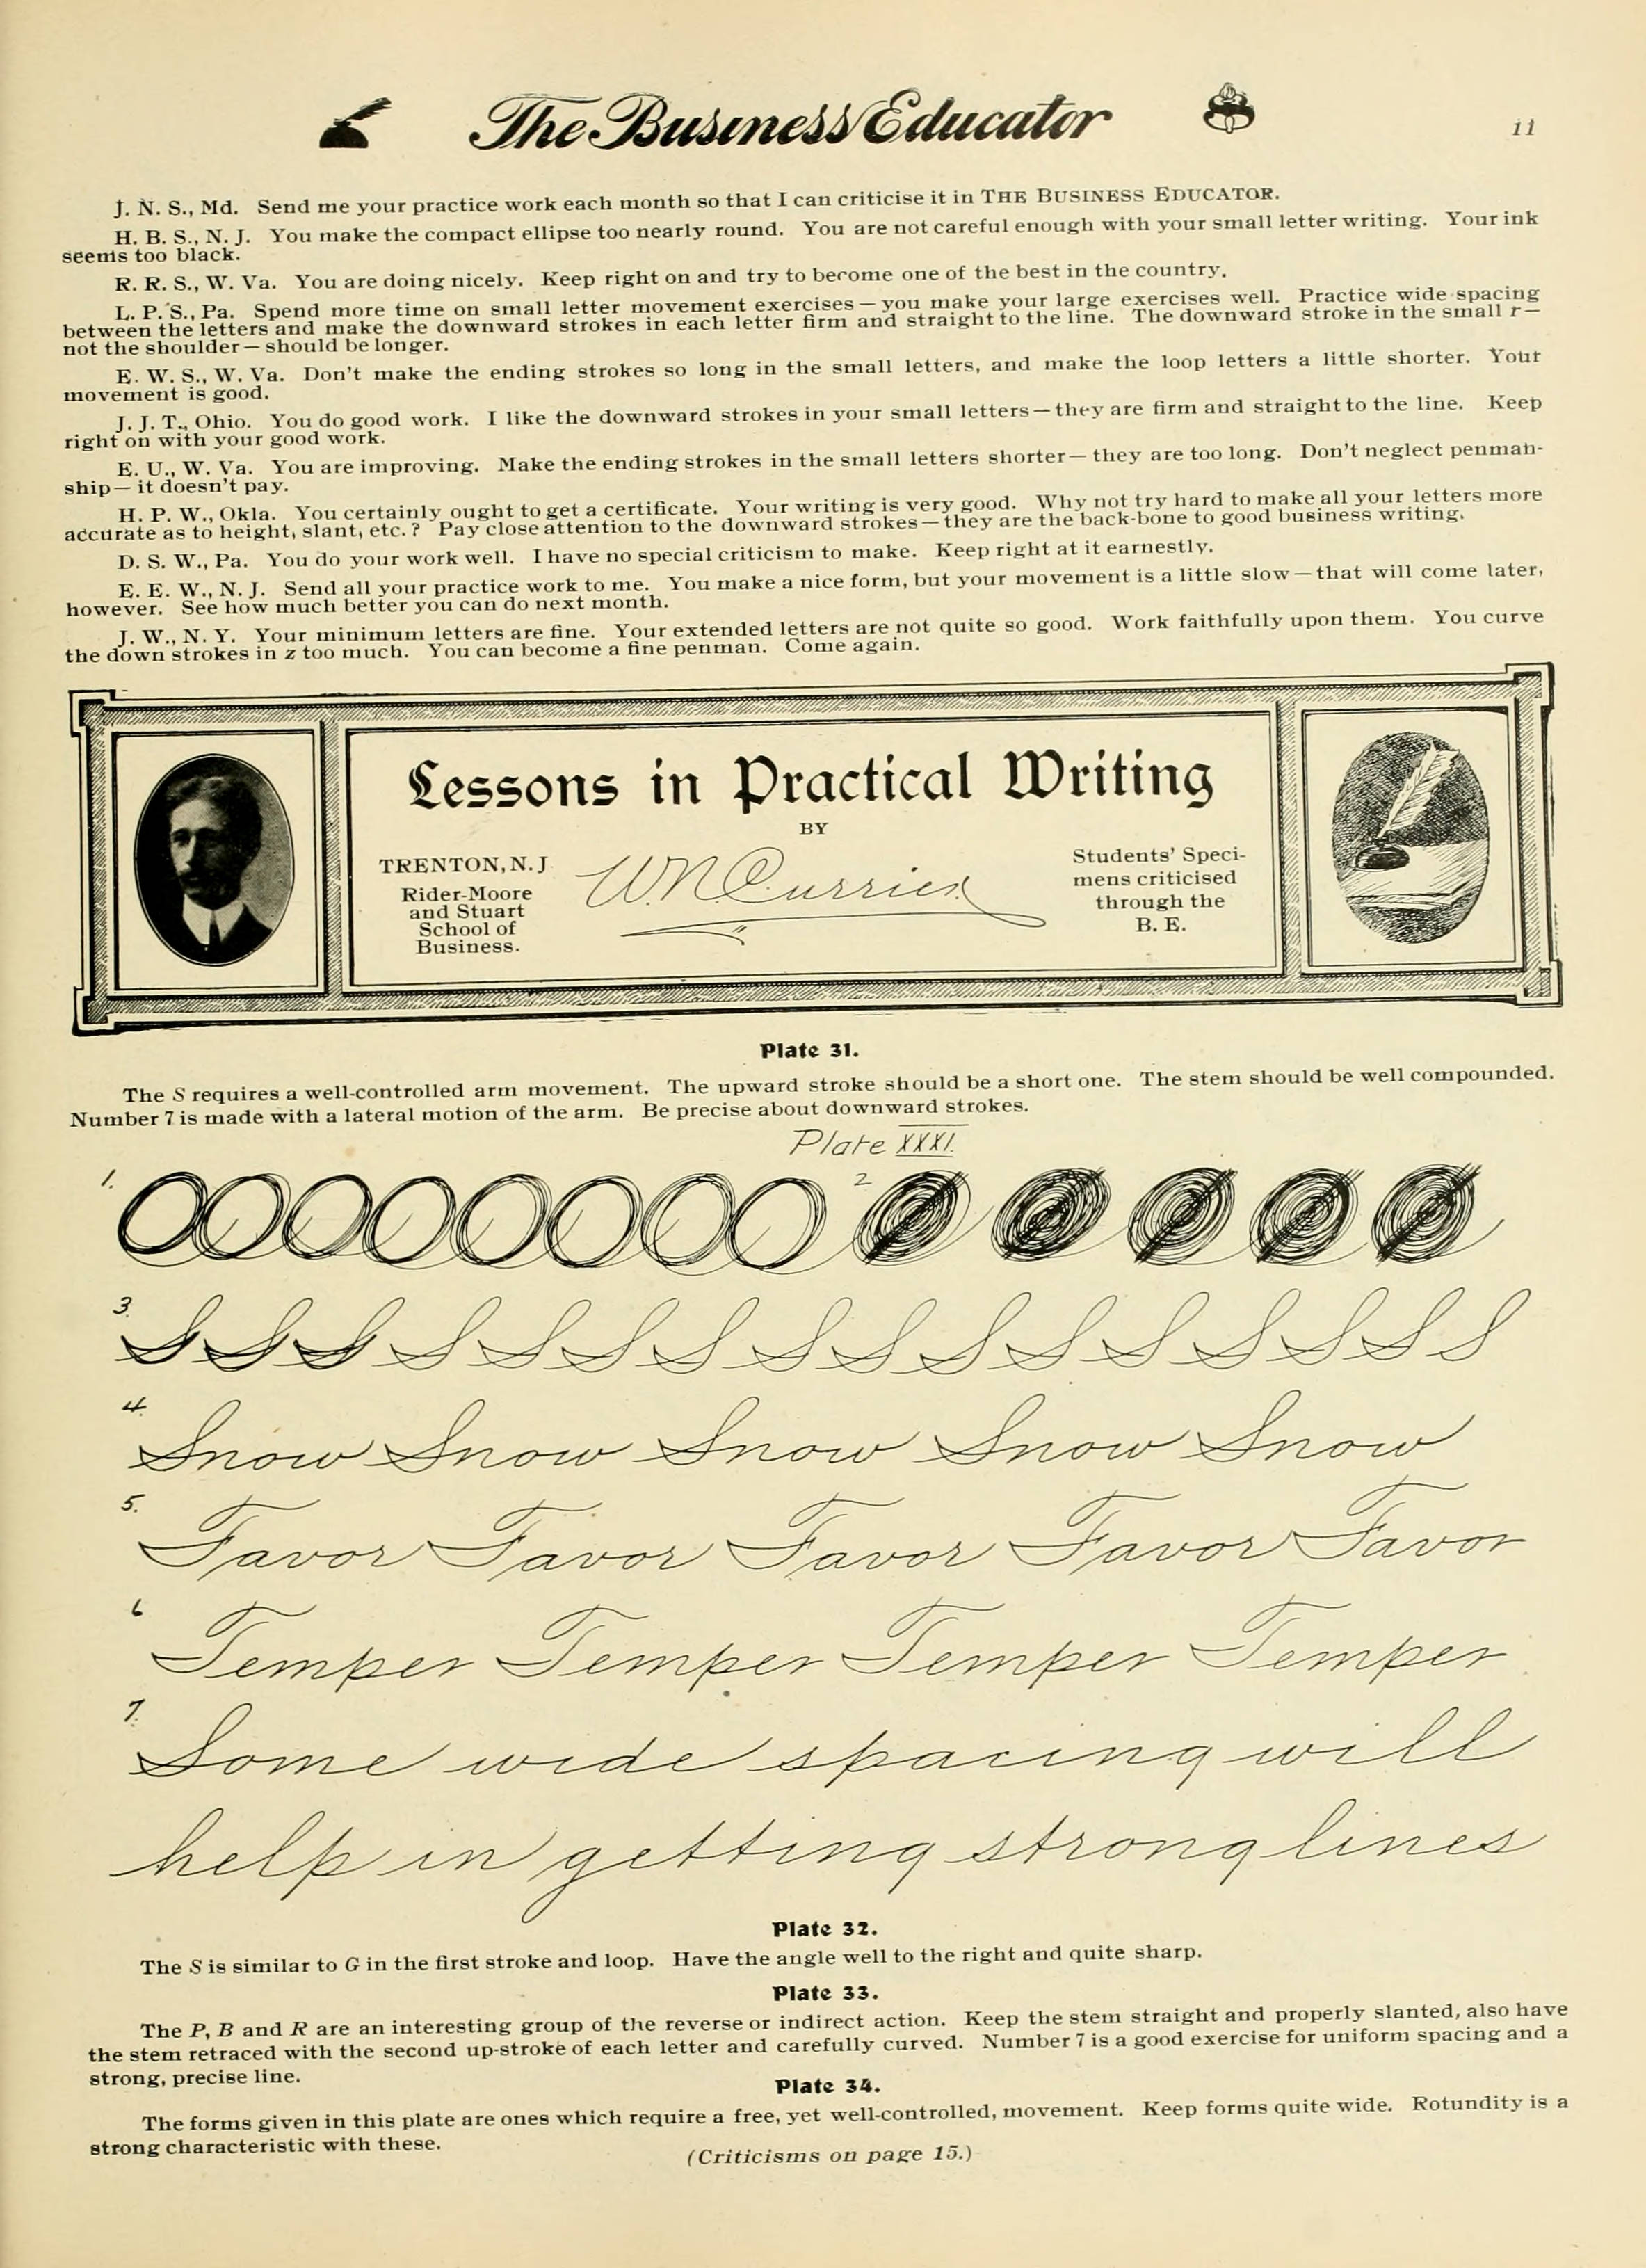 The Business Educator
11
J. N. S., Md. Send me your practice work each month so that I can criticise it in THE BUSINESS EDUCATOR.
H. B. S., N. J. You make the compact ellipse too nearly round. You are not careful enough with your small letter writing. Your ink
seems too black.
R. R. S., W. Va. You are doing nicely. Keep right on and try to become one of the best in the country.
L. P. S., Pa. Spend more time on small letter movement exercises — you make your large exercises well. Practice wide spacing
between the letters and make the downward strokes in each letter firm and straight to the line. The downward stroke in the small r —
not the shoulder — should be longer.
E. W. S., W. Va. Don't make the ending strokes so long in the small letters, and make the loop letters a little shorter. Your
movement is good.
J. J. T., Ohio. You do good work. I like the downward strokes in your small letters — they are firm and straight to the line. Keep
right on with your good work.
E. U., W. Va. You are improving. Make the ending strokes in the small letters shorter — they are too long. Don't neglect penman-
ship — it doesn't pay.
H. P. W., Okla. You certainly ought to get a certificate. Your writing is very good. Why not try hard to make all your letters more
accurate as to height, slant, etc.? Pay close attention to the downward strokes — they are the back-bone to good business writing.
D. S. W., Pa. You do your work well. I have no special criticism to make. Keep right at it earnestly.
E. E. W., N. J. Send all your practice work to me. You make a nice form, but your movement is a little slow — that will come later,
however. See how much better you can do next month.
J. W., N. Y. Your minimum letters are fine. Your extended letters are not quite so good. Work faithfully upon them. You curve
the down strokes in z too much. You can become a fine penman. Come again.
Lessons in Practical Writing
BY
TRENTON, N. J.
Rider-Moore
and Stuart
School of
Business.
W. N. Currier
Students' Speci-
mens criticised
through the
B. E.
Plate 31.
The S requires a well-controlled arm movement. The upward stroke should be a short one. The stem should be well compounded.
Number 7 is made with a lateral motion of the arm. Be precise about downward strokes.
Plate XXXI.
1. 2
3. S S S S S S S S S S S S S S S S
4. Snow Snow Snow Snow Snow
5. Favor Favor Favor Favor Favor
6 Temper Temper Temper Temper
7. Some wide spacing will
help in getting strong lines
Plate 32.
The S is similar to G in the first stroke and loop. Have the angle well to the right and quite sharp.
Plate 33.
The P, B and R are an interesting group of the reverse or indirect action. Keep the stem straight and properly slanted, also have
the stem retraced with the second up-stroke of each letter and carefully curved. Number 7 is a good exercise for uniform spacing and a
strong, precise line.
Plate 34.
The forms given in this plate are ones which require a free, yet well-controlled, movement. Keep forms quite wide. Rotundity is a
strong characteristic with these.
(Criticisms on page 15.)